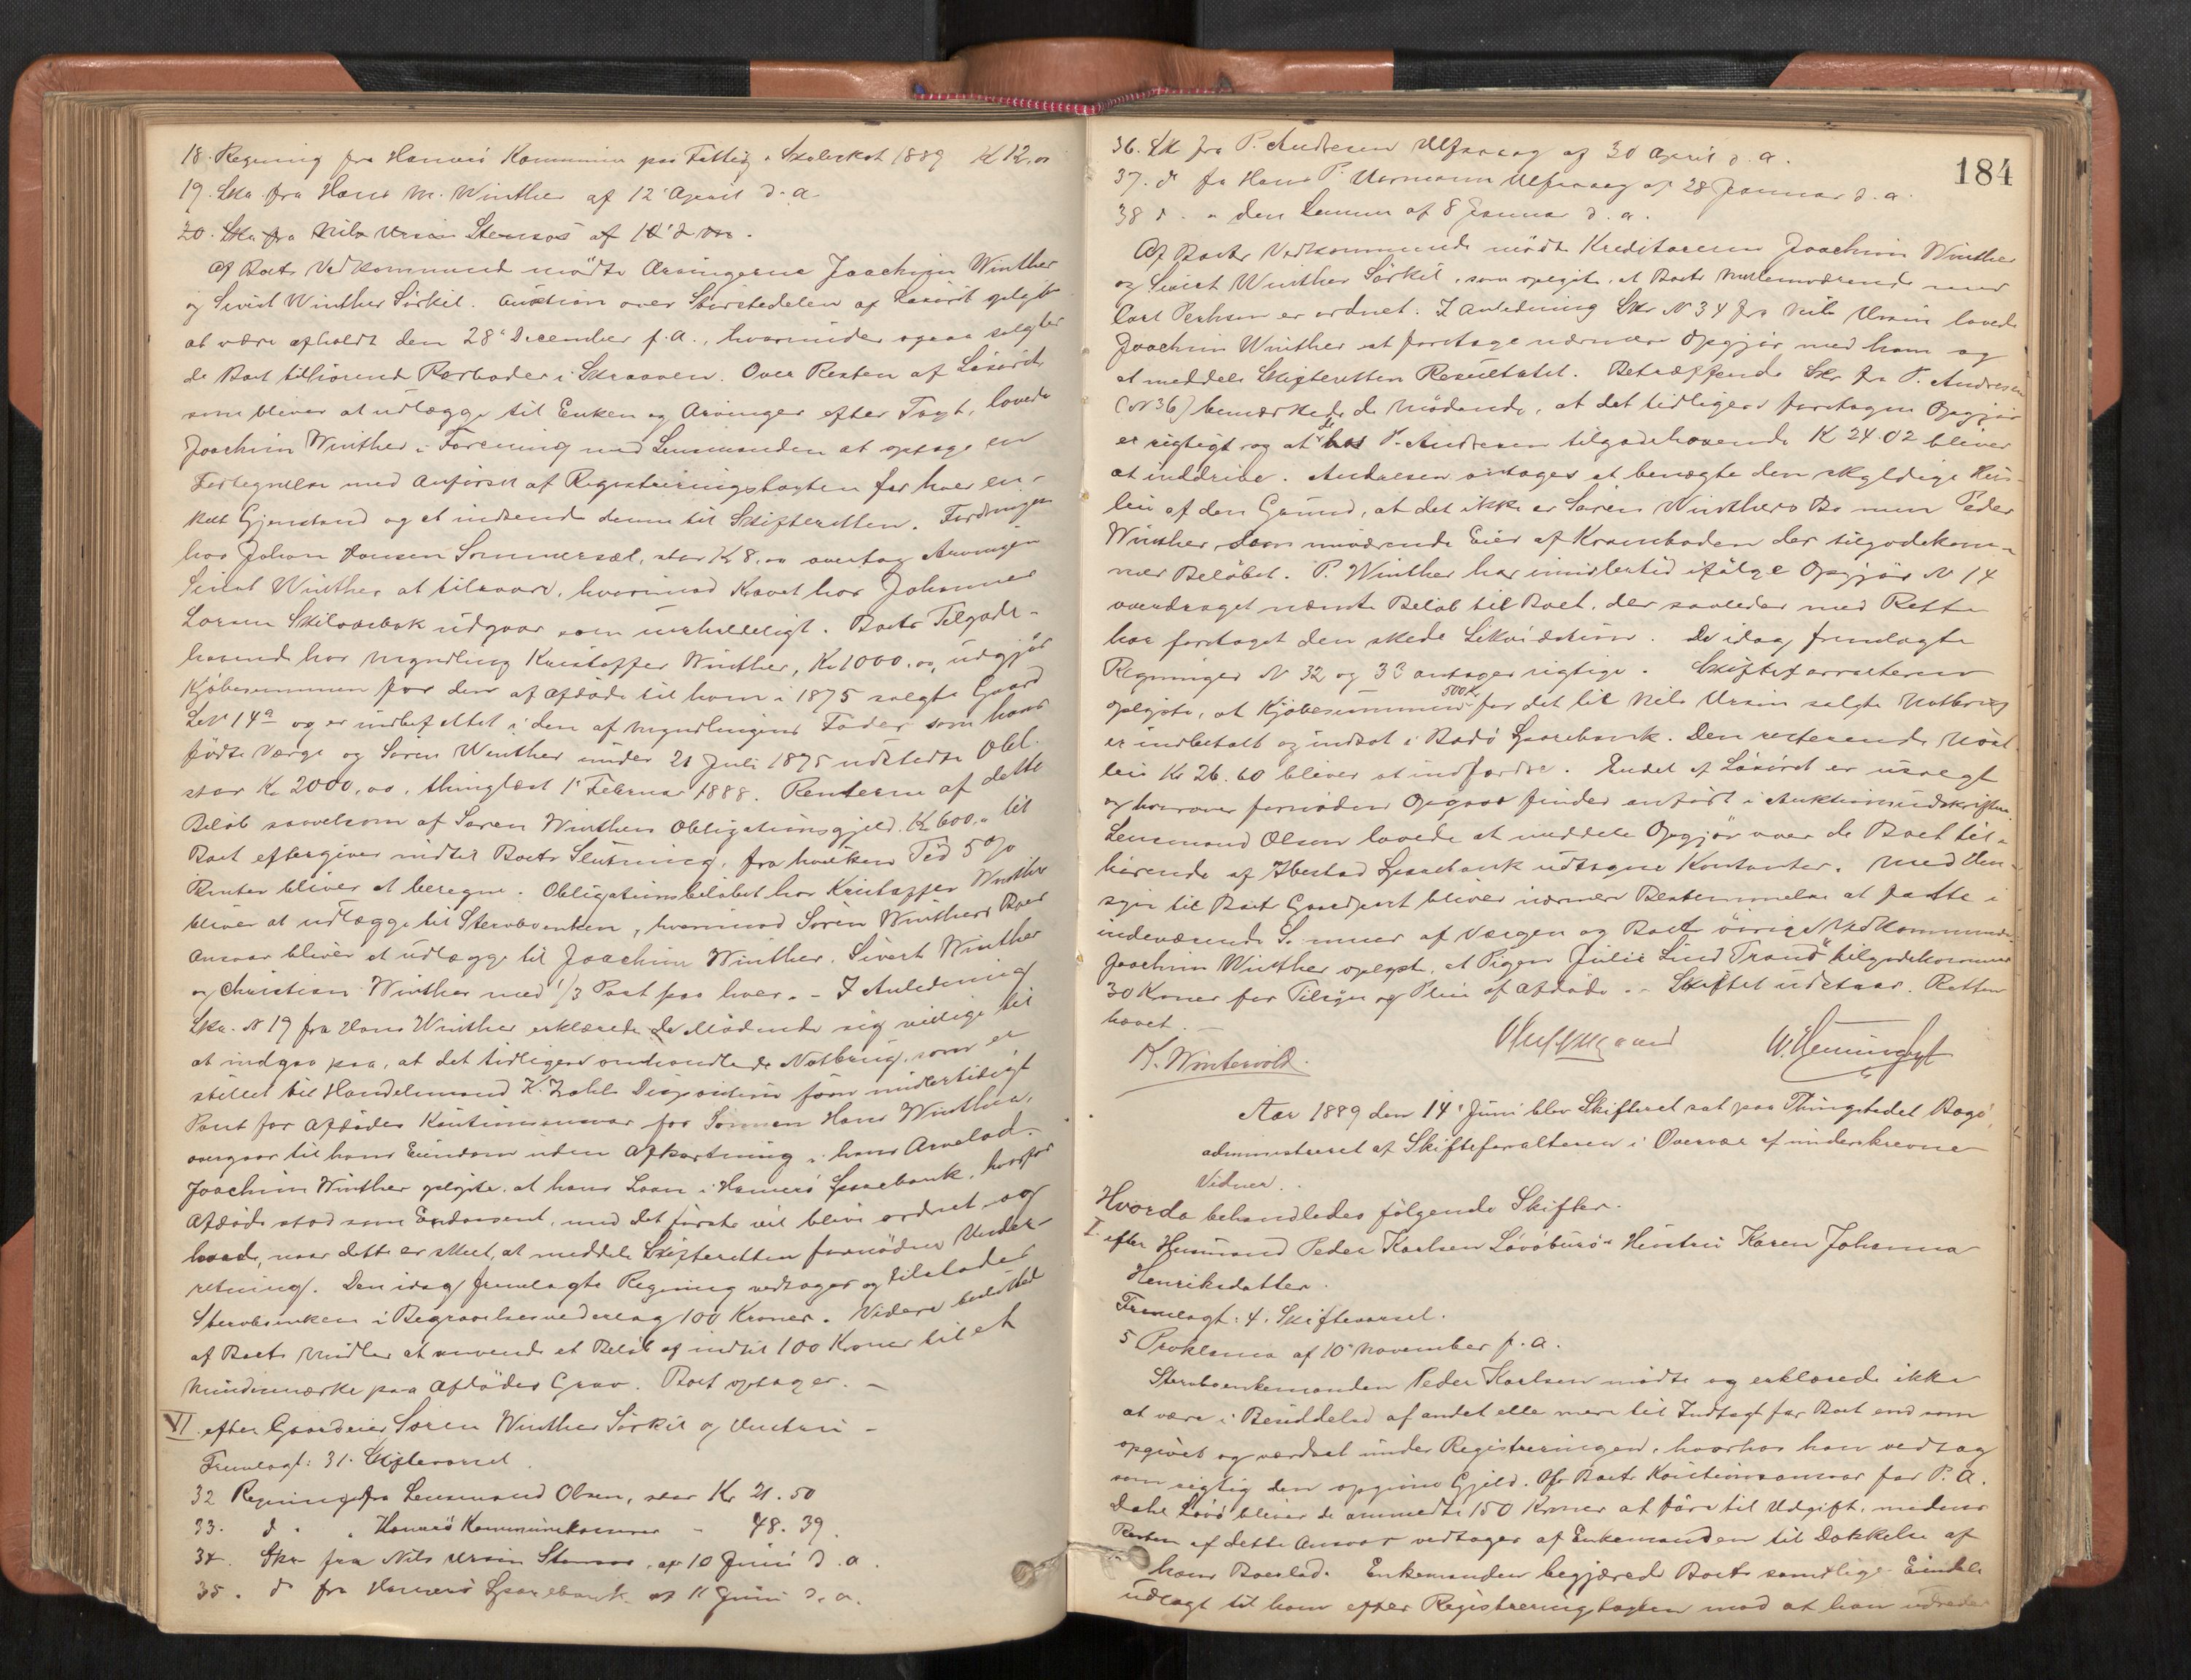 18. Regning fra Hamerö Kommune paa Fattig & Skoleskat 1889 K 12,00
19. Skr. fra Hans M. Winther af 12' April d. a.
20. Skr. fra Nils Ursin Stensos af 1
Af Boets Vedkommende mödte Arvingerne Joachim Winther
og Sivert Winther Sörkil. Auktion over Störstedelen af Lösöret oplyst
at være afholdt den 28' December f. A., hvorunder ogsaa solgtes
de Boet tilhörende Rorboder i Skraaven. Over Resten af Lösöret
som bliver at udlægge til Enken og Arvinger efter Taxt, lovede
Joachim Winther i Forening med Lensmanden at optage en
Fortegnelse med Anförsel af Registreringstaxten for hver en-
kelt Gjenstand og at indsende denne til Skifteretten. Fordringen
hos Johan Hansen Sommersæt, stor K 8,00 overtog Arvingen
Sivert Winther at tilsvare, hvorimod Kravet hos Johannes
Larsen Skilvasbak udgaar som uerholdeligt. Boets Tilgode-
havende hos Myndling Kristoffer Winther, Kr 1000,00, udgjör
Kjöbesummen for den af Afdöde til ham i 1875 solgte Gaard
LN 14a og er indbefattet i den af Myndlingens Fader som hans
födte Værge og Sören Winther under 21 Juli 1875 udstedte Obl.
stor K 2000,00, thinglæst 1' Februar 1888. Renterne af dette
Belöb saavelsom af Sören Winthers Obligationsgjeld K 600,00 til
Boet eftergives indtil Boets Slutning, fra hvilken Tid 5 %
Renter bliver at beregne. Obligationsbelöbet hos Kristoffer Winther
bliver at udlægge til Stervboenken, hvorimod Sören Winthers Boes
Ansvar bliver at udlægge til Joachim Winther, Sivert Winther
og Christian Winther med 1/3 Part paa hver. - I Anledning
Skr. N 19 fra Hans Winther erklærede de Mödende sig villige til
at indgaa paa, at det tidligere omhandlede Notbrug, som er
stillet til Handelsmand K. Zahls Disposition som midlertidigt
Pant for Afdödes Kautionsansvar for Sönnen Hans Winther,
overgaar til hans Eiendom uden Afkortning i hans Arvelod.
Joachim Winther oplyste, at hans Laan i Hamerö Sparebank, hvorfor
Afdöde stod som Endossent, med det förste vil blive ordnet og
lovede, naar dette er skeet, at meddele Skifteretten fornöden Under-
retning. Den idag fremlagte Regning vedtages og tilstodes
Stervboenken i Begravelsesvederlag 100 Kroner. Videre besluttet
af Boets Midler at anvende et Belöb af indtil 100 Kroner til et
Mindesmærke paa Afdödes Grav. Boet optages. -
VI. efter Gaardeier Sören Winther Sörkil og Hustru -
Fremlagt: 31. Skiftevarsel.
32 Regning fra Lensmand Olsen, stor Kr 21.50
33. do " Hamerö Kommunekasserer - 48.39.
34. Skr fra Nils Ursin Stensos af 10 Juni d. a.
35. do fra Hamerö Sparebank af 11 Juni d. a.
184
36. Skr fra P. Andresen Ulfsvaag af 30 April d. a.
37. do fra Hans P. Normann Ulfsvaag af 28 Januar d. a.
38 do. " den Samme af 8 Januar d. a.
Af Boets Vedkommende mödte Kreditorerne Joachim Winther
og Sivert Winther Sörkil, som opgiver, at Boets Mellemværende med
Carl Perhsen er ordnet. I Anledning Skr N 34 fra Nils Ursin lovede
Joachim Winther at foretage nærmere Opgjör med ham og
at meddele Skifteretten Resultatet. Betræffende Skr fra P. Andresen
(N 36) bemærkede de Mödende, at det tidligere foretagne Opgjör
er rigtigt og at det hos P. Andresen tilgodehavende K 24.02 bliver
at inddrive. Andresen antages at benægte den skyldige Hus-
leie af den Grund, at det ikke er Sören Winthers Bo men Peder
Winther, som nuværende Eier af Krambaden der tilgodekom-
mer Belöbet. P. Winther har imidlertid ifölge Opgjör N 14
overdraget nævnte Belöb til Boet, der saaledes med Rette
har foretaget den skede Likvidation. De idag fremlagte
Regninger N 32 og 33 antages rigtige. Skifteforvalteren
oplyste, at Kjöbesummen 500 Kr. for det til Nils Ursin solgte Notbrug
er indbetalt og indsat i Bodö Sparebank. Den resterende Nöst
leie Kr 26.60 bliver at indfordre. Endel af Lösöret er usolgt
og hvorover fornöden Opgave findes anfört i Auktionsudskriften.
Lensmand Olsen lovede at meddele Opgjör over de Boet til-
hörende af Ibestad Sparebank udtagne Kontanter. Med Hen-
syn til Boets Gaardpart bliver nærmere Bestemmelse at fatte i
indeværende Sommer af Værgen og Boets övrige Vedkommende.
Joachim Winther oplyste, at Pigen Julie Lind "Tranö" tilgodekommer
30 Kroner for Tilsyn og Pleie af Afdöde. - Skiftet udstaar. Retten
hævet.
K. Wintervold.
Aar 1889 den 14' Juni blev Skifteret sat paa Thingstedet Bogö,
administreret af Skifteforvalteren i Overvær af underskrevne
Vidner.
Hvorda behandledes fölgende Skifter.
I. efter Husmand Peder Karlsen Lövöburös Hustru Karen Johanna
Henriksdatter.
Fremlagt: 4. Skiftevarsel.
5 Proklama af 10' November f. a.
Stervboenkemanden Peder Karlsen mödte og erklærede ikke
at være i Besiddelse af andet eller mere til Indtægt for Boet end som
opgivet og værdsat under Registreringen, hvorhos han vedtog
som rigtig den opgivne Gjeld. Af Boets Kautionsansvar for P. A.
Dahl Lövö bliver de anmeldte 150 Kroner at före til Udgift, medens
Resten af dette Ansvar vedtages af Enkemanden til Dækkelse af
hans Boeslod. Enkemanden begjærede Boets samtlige Eiendele
udlagt til ham efter Registreringstaxten mod at han udreder